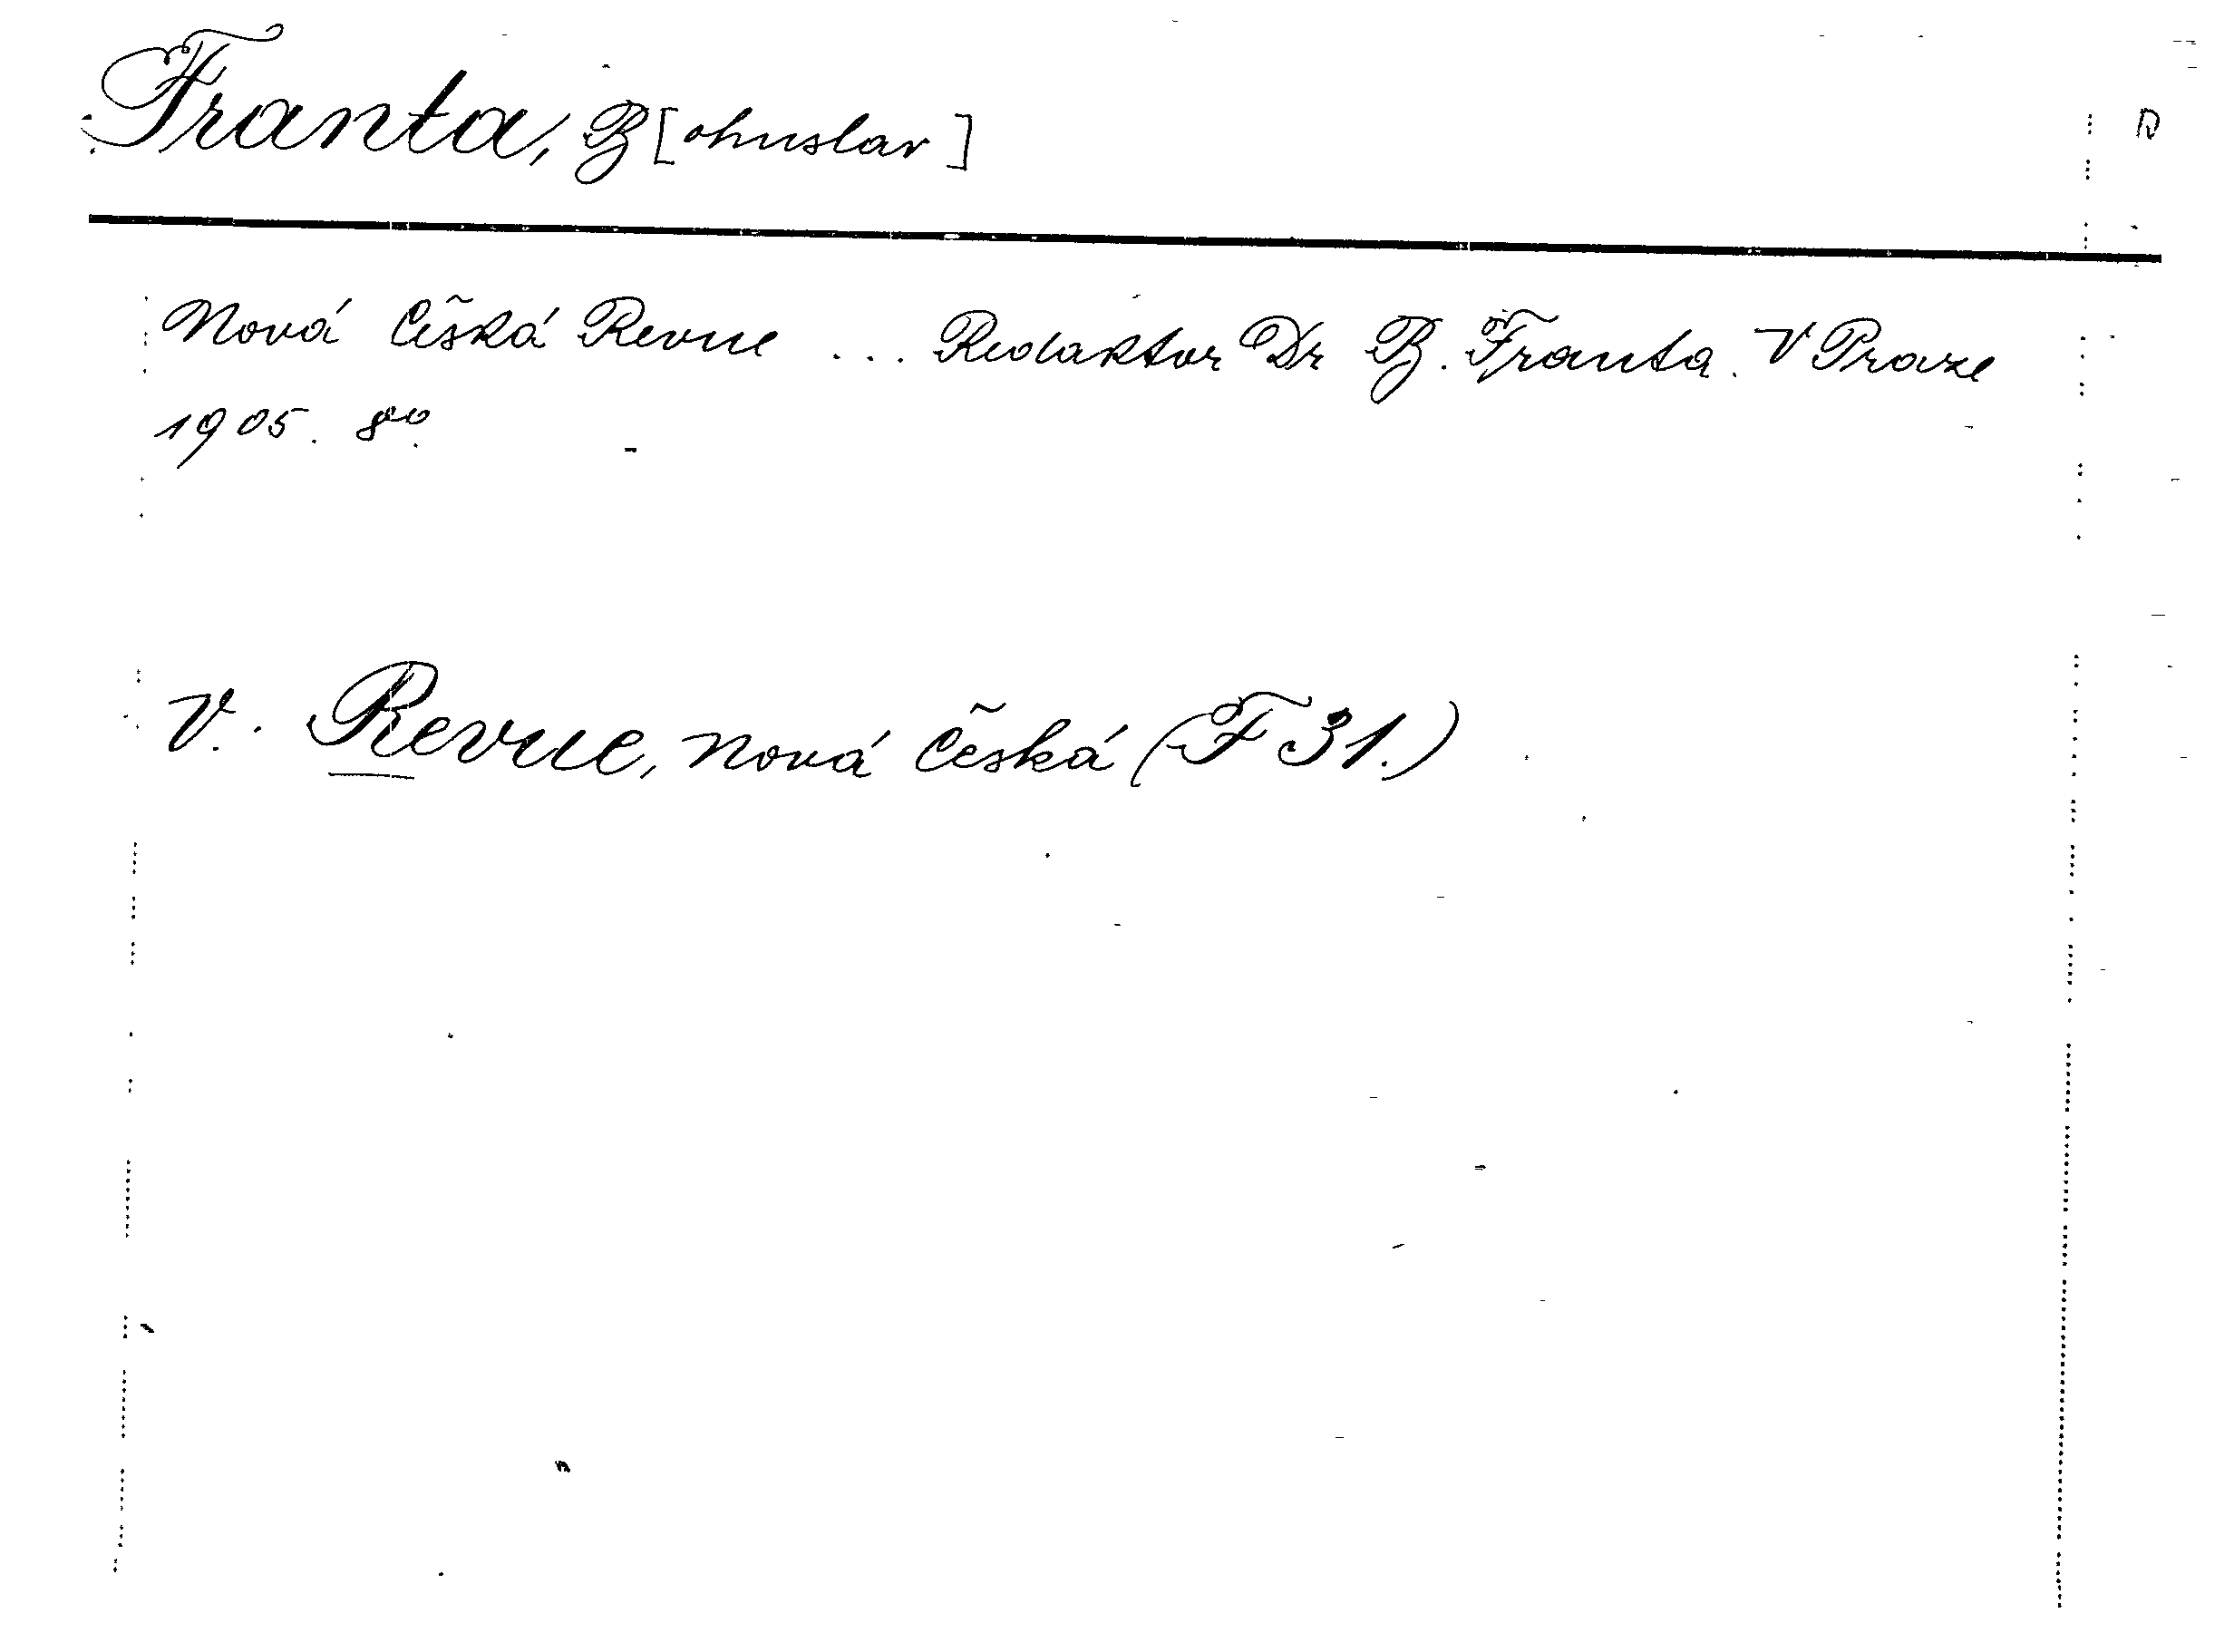 Franta, B[ohuslav]
Nová Česká Revue ... Redaktor Dr B. Franta. V Praze
1905. 8°.
V. Revue, nová česká (F 31.)